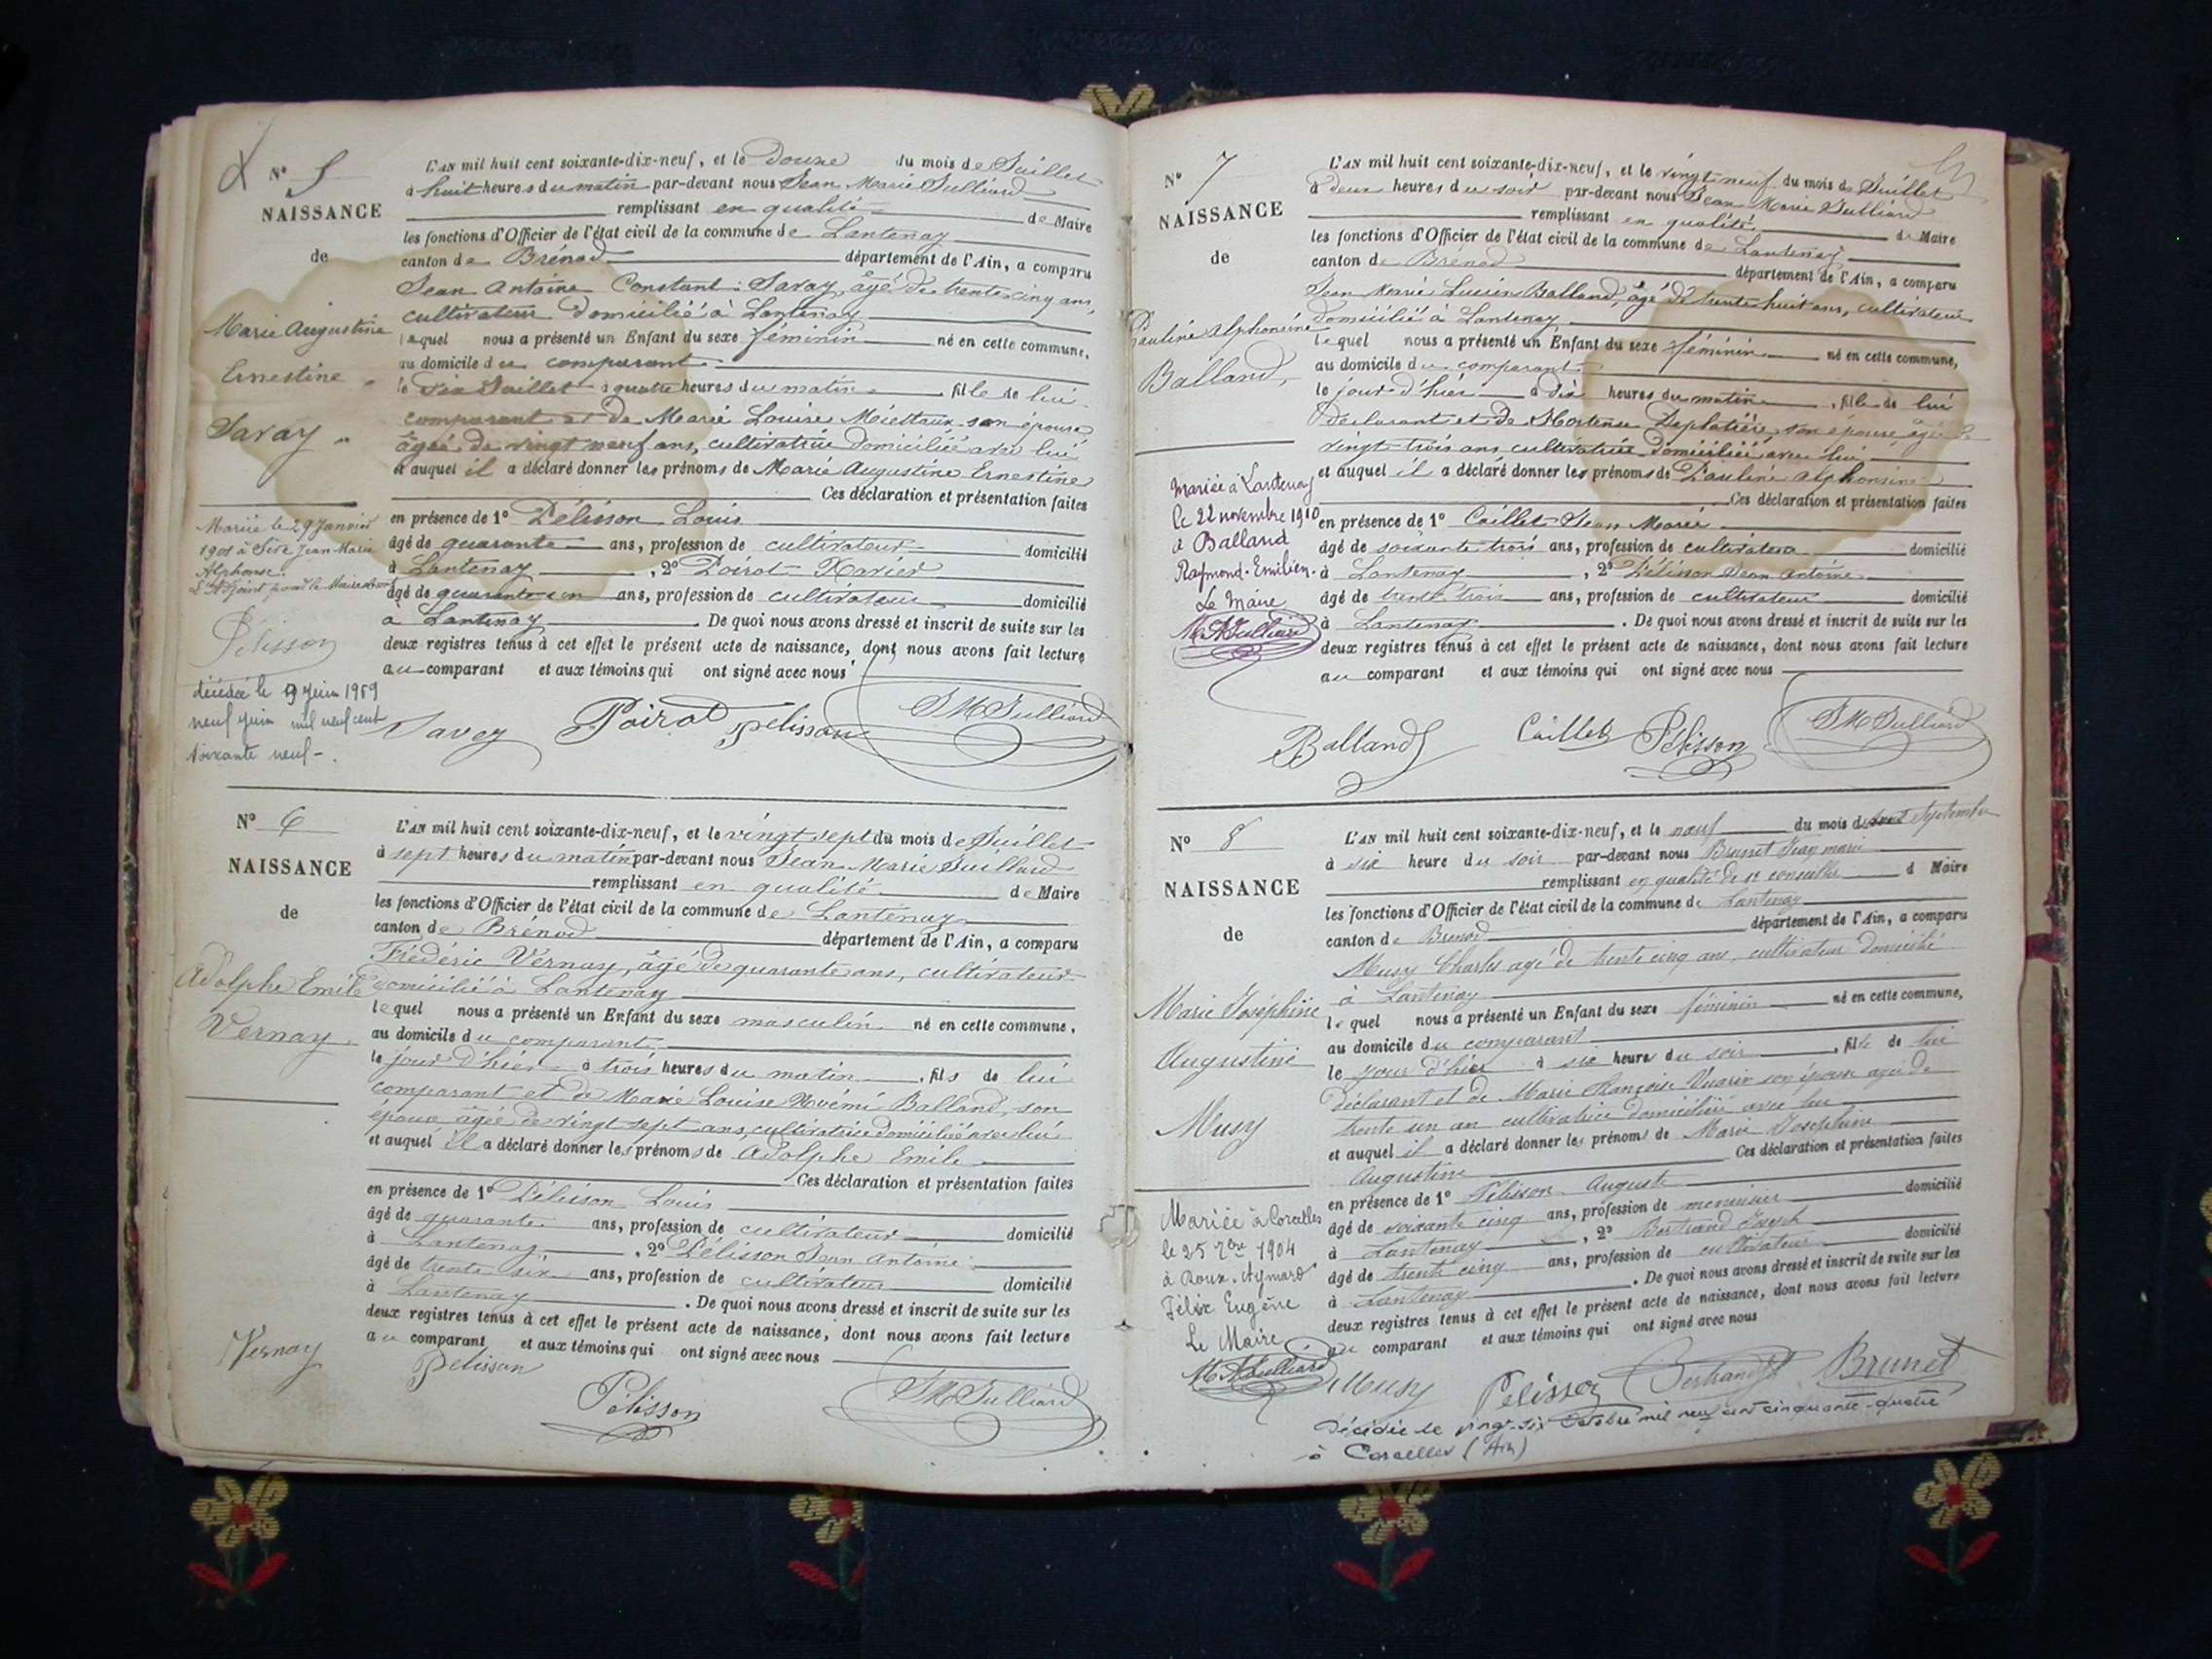 N° 5
NAISSANCE
de
Marie Augustine
Ernestine
Savay
Mariée le 29 Janvier
1901 à Sève Jean Marie
Alphonse.
Pélisson
décédée le 9 juin 1969
neuf juin mil neuf cent
soixante neuf -.
L'AN mil huit cent soixante-dix-neuf, et le Douze du mois de Juillet
à huit heures du matin par-devant nous Jean Marie Julliard
remplissant en qualité de Maire
les fonctions d'Officier de l'état civil de la commune de Lantenay
canton de Brénod département de l'Ain, a comparu
Jean Antoine Constant Savay, âgé de trente cinq ans,
cultivateur domicilié à Lantenay
lequel nous a présenté un Enfant du sexe féminin né en cette commune,
au domicile du comparant
le Dix Juillet à quatre heures du matin, fille de lui
comparant et de Marie Louise Miettaux son épouse
âgée de vingt neuf ans, cultivatrice domiciliée avec lui
et auquel il a déclaré donner les prénoms de Marie Augustine Ernestine
Ces déclaration et présentation faites
en présence de 1° Pélisson Louis
âgé de quarante ans, profession de cultivateur domicilié
à Lantenay, 2° Poirot Xavier
âgé de quarante un ans, profession de cultivateur domicilié
à Lantenay. De quoi nous avons dressé et inscrit de suite sur les
deux registres tenus à cet effet le présent acte de naissance, dont nous avons fait lecture
au comparant et aux témoins qui ont signé avec nous
Savey Poirot pelisson JM Julliard
N° 6
NAISSANCE
de
Adolphe Emile
Vernay
L'AN mil huit cent soixante-dix-neuf, et le vingt sept du mois de Juillet
à sept heures du matin par-devant nous Jean Marie Julliard
remplissant en qualité de Maire
les fonctions d'Officier de l'état civil de la commune de Lantenay
canton de Brénod département de l'Ain, a comparu
Frédéric Vernay, âgé de quarante ans, cultivateur
domicilié à Lantenay
lequel nous a présenté un Enfant du sexe masculin né en cette commune,
au domicile du comparant
le jour d'hier à trois heures du matin, fils de lui
comparant et de Marie Louise Noémi Balland, son
épouse, âgée de vingt sept ans, cultivatrice domiciliée avec lui
et auquel il a déclaré donner les prénoms de Adolphe Emile
Ces déclaration et présentation faites
en présence de 1° Pélisson Louis
âgé de quarante ans, profession de cultivateur domicilié
à Lantenay, 2° Pélisson Jean Antoine
âgé de trente six ans, profession de cultivateur domicilié
à Lantenay. De quoi nous avons dressé et inscrit de suite sur les
deux registres tenus à cet effet le présent acte de naissance, dont nous avons fait lecture
au comparant et aux témoins qui ont signé avec nous
Vernay pelisson Pélisson JM Julliard
N° 7
NAISSANCE
de
Pauline Alphonsine
Balland
Mariée à Lantenay
le 22 novembre 1910
à Balland
Raymond-Emilien.
Le Maire
L'AN mil huit cent soixante-dix-neuf, et le vingt neuf du mois de Juillet
à deux heures du soir par-devant nous Jean Marie Julliard
remplissant en qualité de Maire
les fonctions d'Officier de l'état civil de la commune de Lantenay
canton de Brénod département de l'Ain, a comparu
Jean Marie Lucien Balland, âgé de trente huit ans, cultivateur
domicilié à Lantenay
lequel nous a présenté un Enfant du sexe féminin né en cette commune,
au domicile du comparant
le jour d'hier à dix heures du matin, fille de lui
déclarant et de Hortense Deplatière son épouse âgée de
vingt trois ans cultivatrice domiciliée avec lui
et auquel il a déclaré donner les prénoms de Pauline Alphonsine
Ces déclaration et présentation faites
en présence de 1° Caillet Jean Marie
âgé de soixante trois ans, profession de cultivateur domicilié
à Lantenay, 2° Pélisson Jean Antoine
âgé de trente trois ans, profession de cultivateur domicilié
à Lantenay. De quoi nous avons dressé et inscrit de suite sur les
deux registres tenus à cet effet le présent acte de naissance, dont nous avons fait lecture
au comparant et aux témoins qui ont signé avec nous
Balland Caillet Pélisson JM Julliard
N° 8
NAISSANCE
de
Marie Joséphine
Augustine
Musy
Mariée à Corcelles
le 25 7bre 1904
à Roux-Aymard
Félix Eugène
Le Maire
L'AN mil huit cent soixante-dix-neuf, et le neuf du mois de Septembre
à six heure du soir par-devant nous Brunet Jean marie
remplissant en qualité de conseiller d Maire
les fonctions d'Officier de l'état civil de la commune de Lantenay
canton de Brenod département de l'Ain, a comparu
Musy Charles agé de trente cinq ans, cultivateur domicilié
à Lantenay
lequel nous a présenté un Enfant du sexe féminin né en cette commune,
au domicile du comparant
le jour d'hier à six heure du soir, fille de lui
déclarant et de Marie Françoise Vuarin son épouse agée de
trente un an cultivatrice domiciliée avec lui
et auquel il a déclaré donner les prénoms de Marie Joséphine
Augustine Ces déclaration et présentation faites
en présence de 1° Pélisson Auguste
âgé de soixante cinq ans, profession de menuisier domicilié
à Lantenay, 2° Bertrand Joseph
âgé de trente cinq ans, profession de cultivateur domicilié
à Lantenay. De quoi nous avons dressé et inscrit de suite sur les
deux registres tenus à cet effet le présent acte de naissance, dont nous avons fait lecture
au comparant et aux témoins qui ont signé avec nous
Musy Pelisson Bertrand Brunet
Décédée le vingt-six octobre mil neuf cent cinquante-quatre
à Corcelles (Ain)